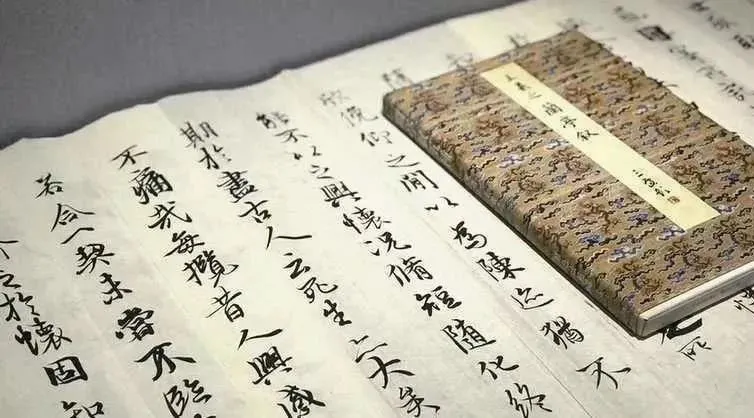 王羲之蘭亭叙
欣俛仰之間以為陳迹猶不
能不以之興懷況脩短隨化終
期於盡古人云死生亦大矣
不痛哉每攬昔人興感
若合一契未嘗不臨
之於懷固知